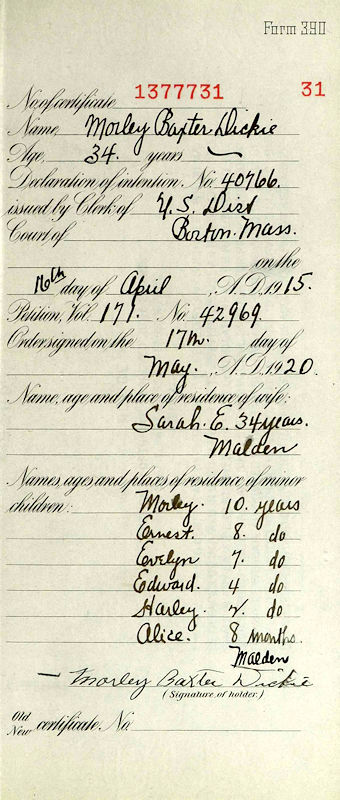 Form 390
No. of certificate 1377731 31
Name Morley Baxter Dickie
Age, 34. years
Declaration of intention. No. 40766.
issued by Clerk of U.S. Dist
Court of Boston. Mass.
on the
16th day of April, A.D. 1915.
Petition, Vol. 171. No. 42969.
Order signed on the 17th. day of
May. , A.D. 1920.
Name, age and place of residence of wife:
Sarah. E. 34 years.
Malden
Names, ages and places of residence of minor
children: Morley. 10. years
Ernest. 8. do
Evelyn 7. do
Edward. 4 do
Harley. 2. do
Alice. 8 months.
Malden
Morley Baxter Dickie
(Signature of holder.)
Old
New certificate. No.